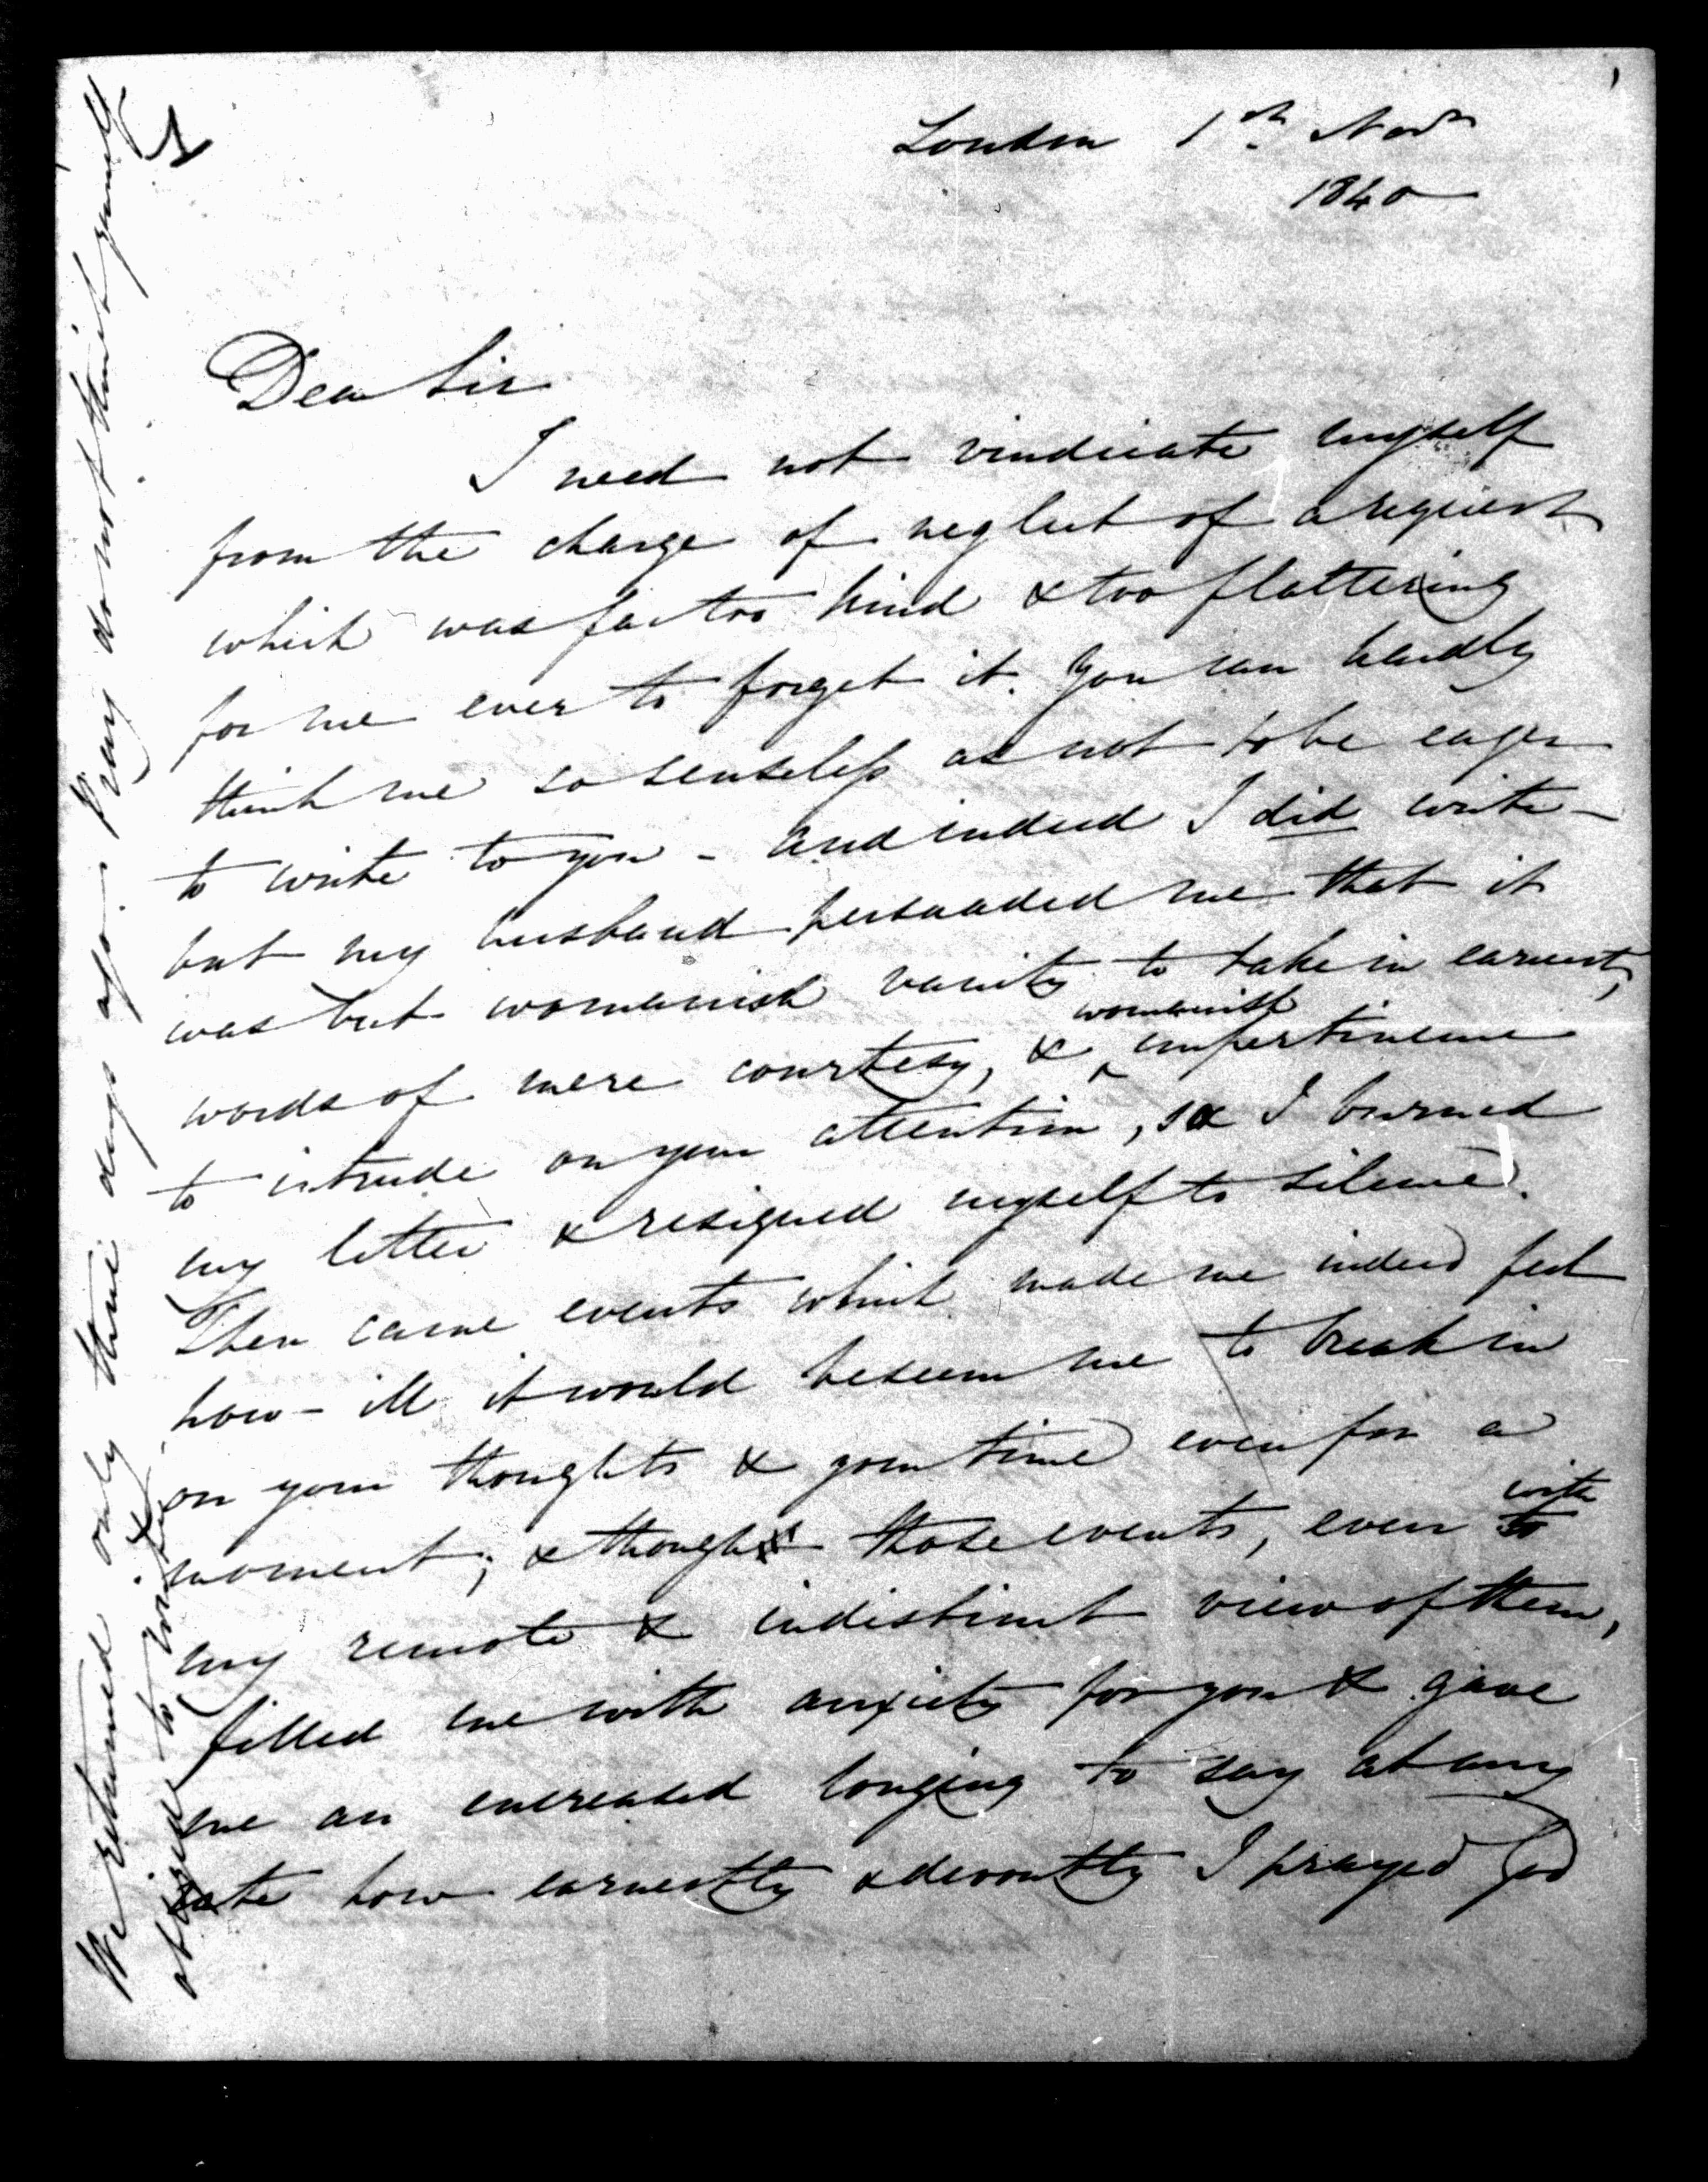 London 1st Novr
1840
Dear Sir
I need not vindicate myself
from the charge of neglect of a request
which was far too kind & too flattering
for me ever to forget it. You can hardly
think me so senseless as not to be eager
to write to you - and indeed I did write -
but my husband persuaded me that it
was but womanish vanity to take in earnest,
words of mere courtesy, & womanish impertinence
to intrude on your attention, so I burned
my letter & resigned myself to silence.
Then came events which made me indeed feel
how - ill it would beseem me to break in
on your thoughts & your time even for a
moment; & though those events, even with
my remote & indistinct view of them,
filled me with anxiety for you & gave
me an encreased longing to say at any
rate how earnestly & devoutly I prayed God
We returned only three days ago. Pray do not think yourself
obliged to write
1